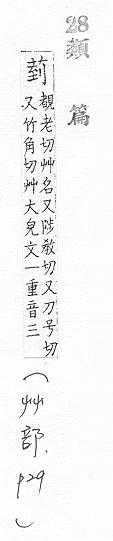 28類
篇
菿
覩老切艸名又陟敎切又刀号切
又竹角切艸大皃文一重音三
（艸部．p29）